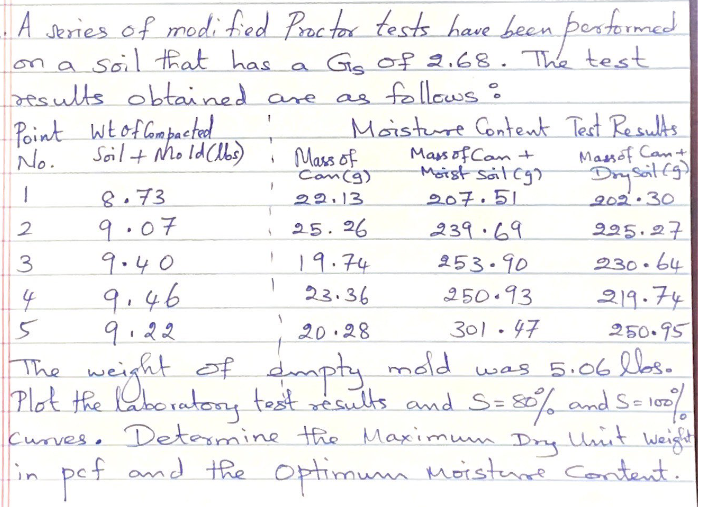 . A series of modified Proctor tests have been performed
on a soil that has a Gs of 2.68. The test
results obtained are as follows :
Point Wt of Compacted Moisture Content Test Results
No. Soil + Mold (lbs) Mass of Can (g) Mass of Can + Moist Soil (g) Mass of Can + Dry Soil (g)
1 8.73 22.13 207.51 202.30
2 9.07 25.26 239.69 225.27
3 9.40 19.74 253.90 230.64
4 9.46 23.36 250.93 219.74
5 9.22 20.28 301.47 250.95
The weight of empty mold was 5.06 lbs.
Plot the laboratory test results and S=80% and S=100%
curves. Determine the Maximum Dry Unit Weight
in pcf and the Optimum Moisture Content.